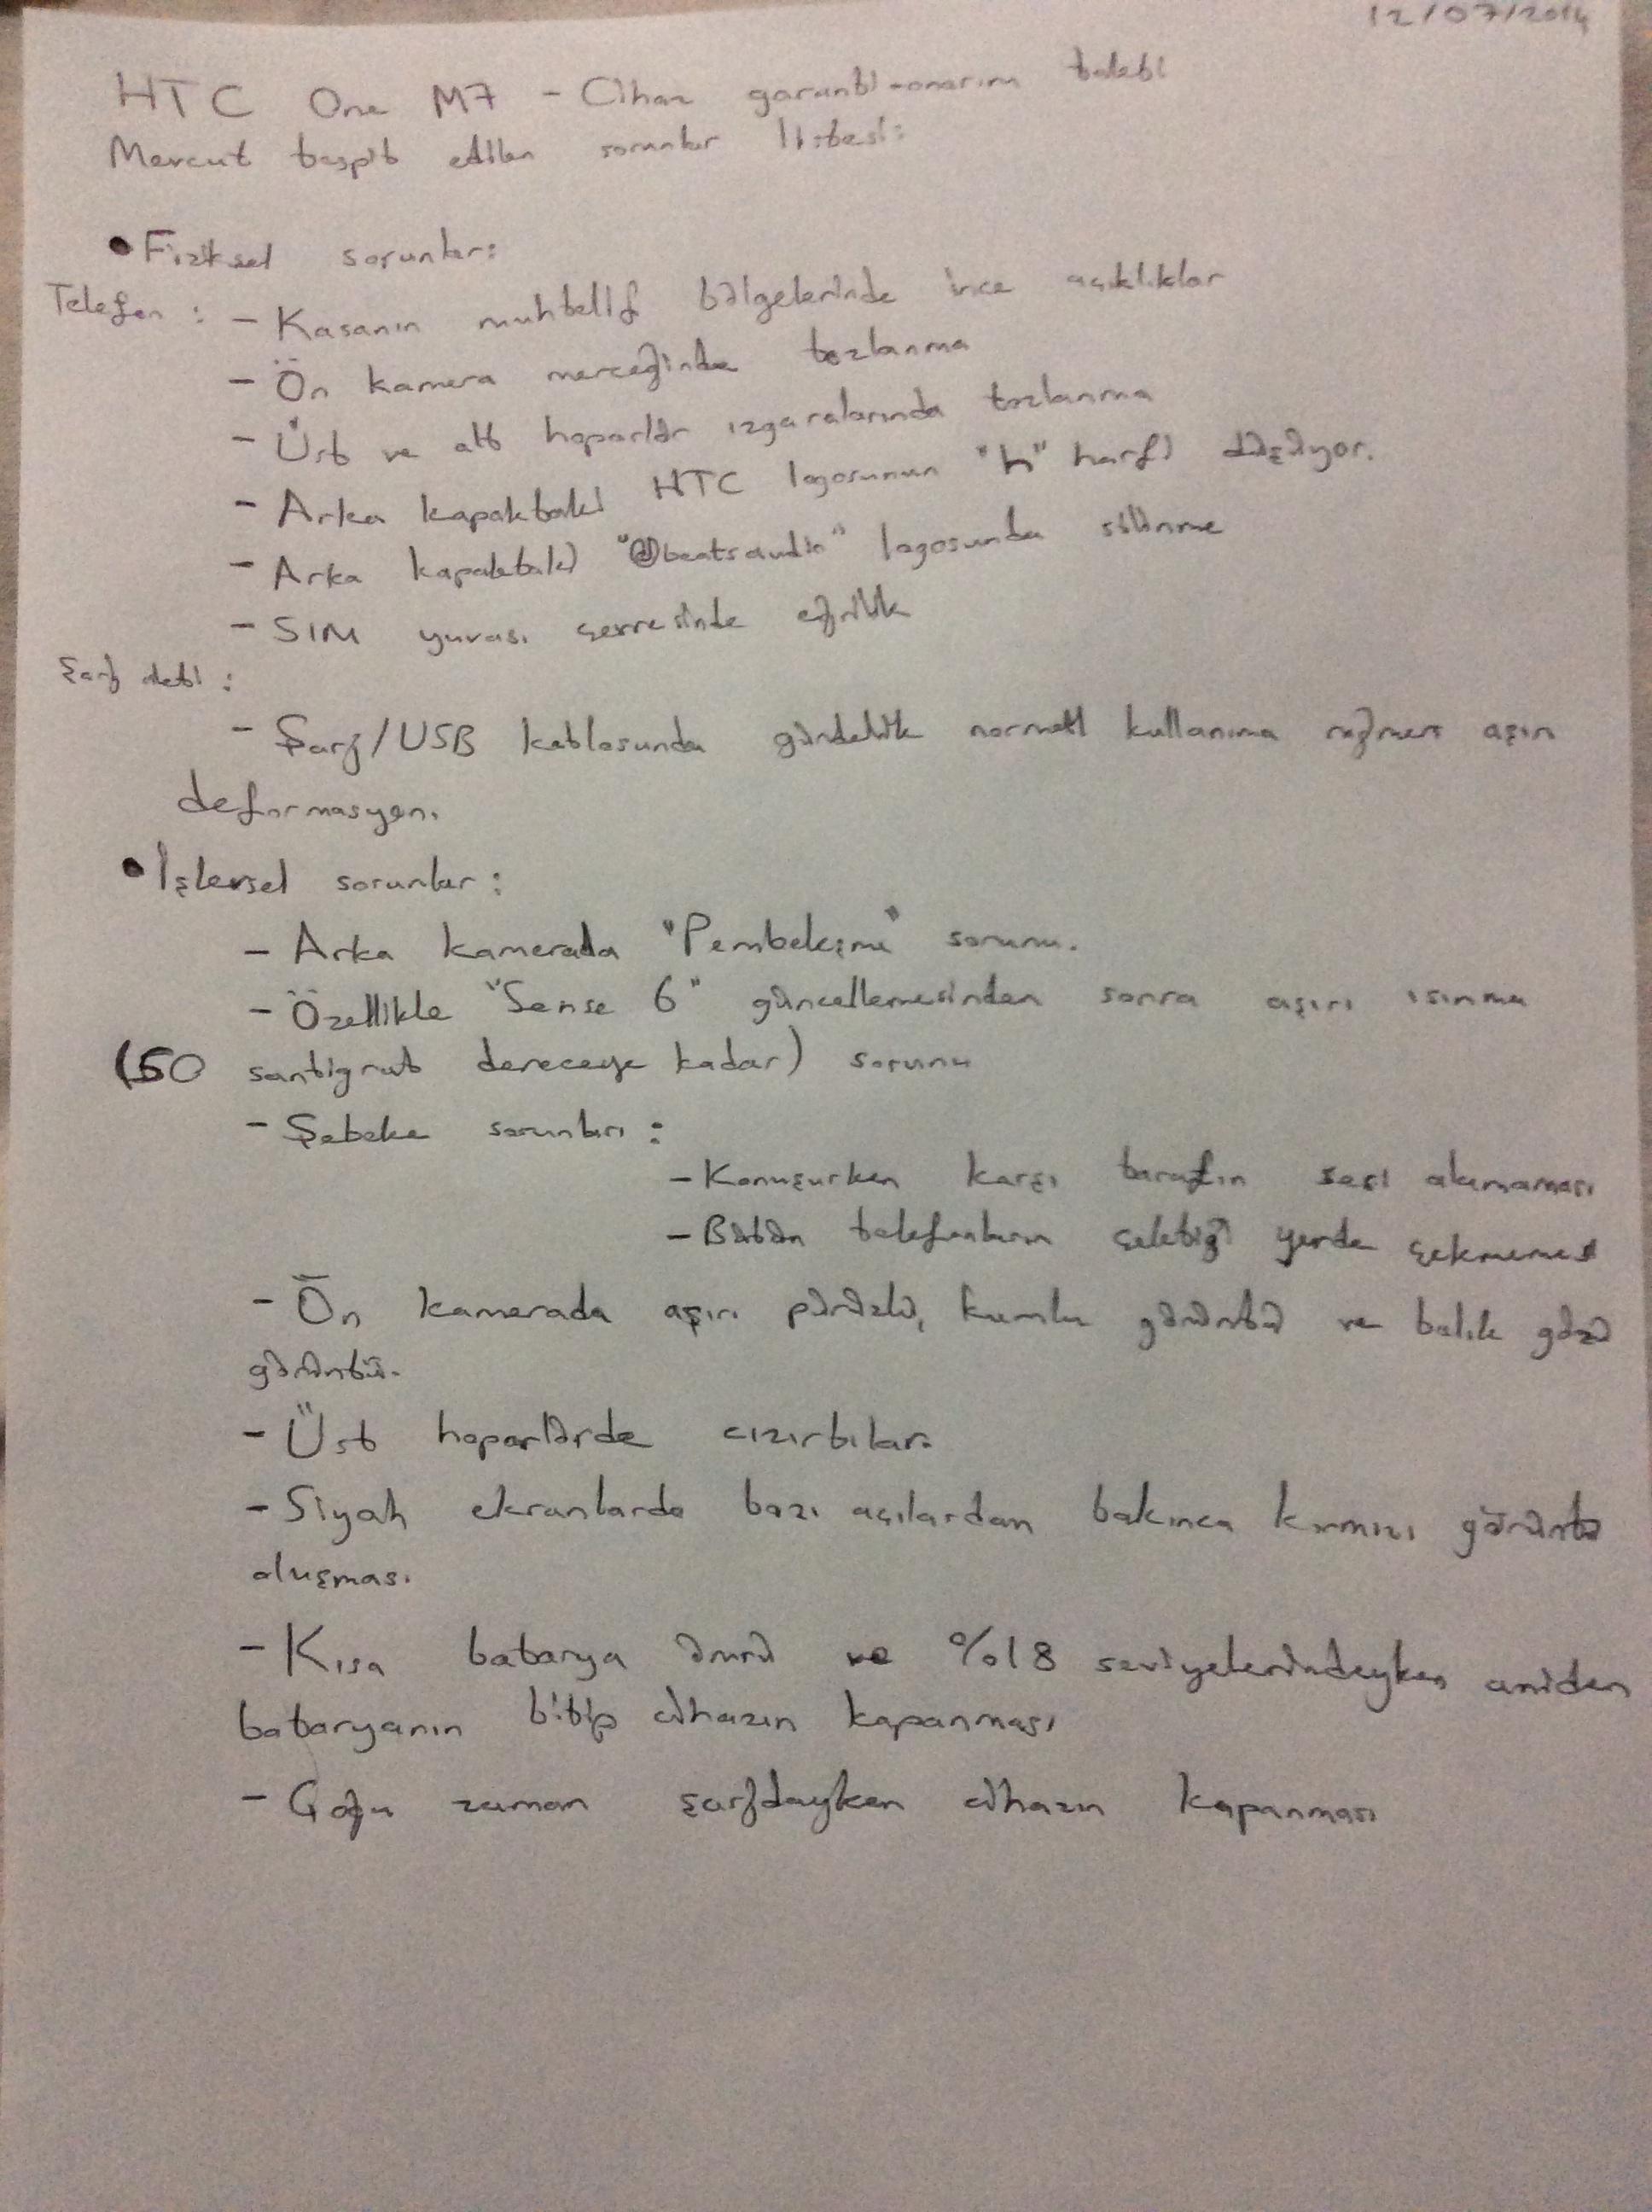 12/07/2014
HTC One M7 - Cihaz garanti-onarım talebi
Mevcut tespit edilen sorunlar listesi:
• Fiziksel sorunlar:
Telefon : - Kasanın muhtelif bölgelerinde ince açıklıklar
- Ön kamera merceğinde tozlanma
- Üst ve alt hoparlör ızgaralarında tozlanma
- Arka kapaktaki HTC logosunun "h" harfi düşüyor.
- Arka kapaktaki "beatsaudio" logosunda silinme
- SIM yuvası çevresinde eğrilik
Şarj aleti :
- Şarj/USB kablosunda gündelik normal kullanıma rağmen aşırı
deformasyon.
• İşlevsel sorunlar :
- Arka kamerada "Pembeleşme" sorunu.
- Özellikle "Sense 6" güncellemesinden sonra aşırı ısınma
(50 santigrat dereceye kadar) sorunu
- Şebeke sorunları :
- Konuşurken karşı tarafın sesi alamaması
- Bütün telefonların çektiği yerde çekmemesi
- Ön kamerada aşırı pürüzlü, kumlu görüntü ve balık gözü
görüntü.
- Üst hoparlörde cızırtılar.
- Siyah ekranlarda bazı açılardan bakınca kırmızı görüntü
oluşması.
- Kısa batarya ömrü ve %18 seviyelerindeyken aniden
bataryanın bitip cihazın kapanması
- Çoğu zaman şarjdayken cihazın kapanması